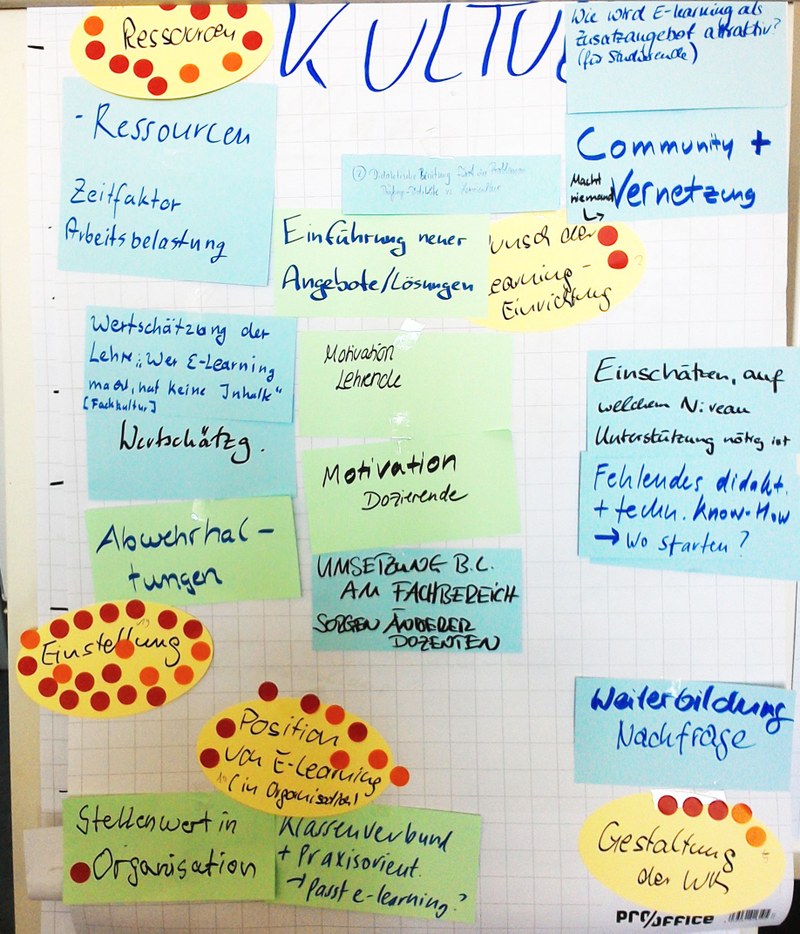 Ressourcen
KULTU
Wie wird E-learning als
Zusatzangebot attraktiv?
(für Studierende)
- Ressourcen
Zeitfaktor
Arbeitsbelastung
Community +
Vernetzung
Macht
niemand
Einführung neuer
Angebote/Lösungen
unsch der
earning-
Einrichtung
Wertschätzung der
Lehre; "Wer E-Learning
macht, hat keine Inhalte"
[Fachkultur]
Wertschätzg.
Motivation
Lehrende
Motivation
Dozierende
Einschätzen, auf
welchem Niveau
Unterstützung nötig ist
Fehlendes didakt.
+ techn. Know-How
→ Wo starten?
Abwehrhal-
tungen
UMSETZUNG B.L.
AM FACHBEREICH
SORGEN ANDERER
DOZENTEN
Einstellung
19
Position
von E-Learning
(in Organisation)
Weiterbildung
Nachfrage
Stellenwert in
Organisation
Klassenverbund
+ Praxisorient.
→ passt e-learning?
Gestaltung
der WB
PRO/OFFICE